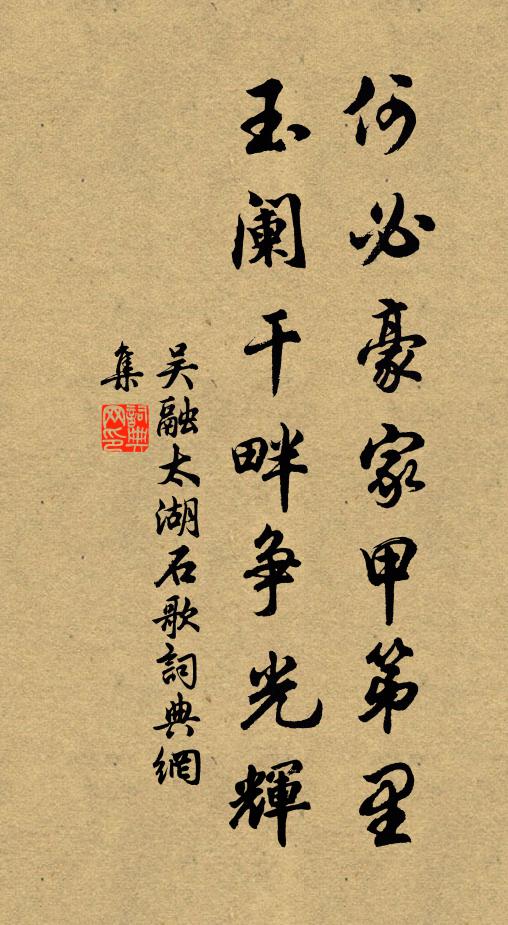 何必豪家甲第里
玉阑干畔争光輝
吴融太湖石歌詞典網
集
詞典
网印